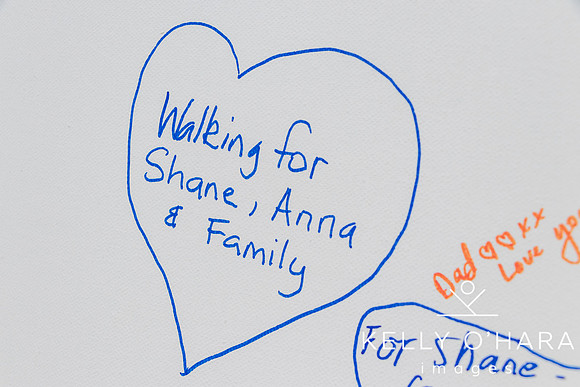 Walking for
Shane, Anna
& Family
Dad xx
Love you
For Shane -
KELLY O'HARA
images